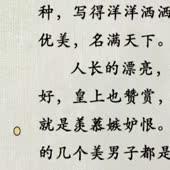 种，写得洋洋洒洒
优美，名满天下。
人长的漂亮，
好，皇上也赞赏，
就是羡慕嫉妒恨。
的几个美男子都是